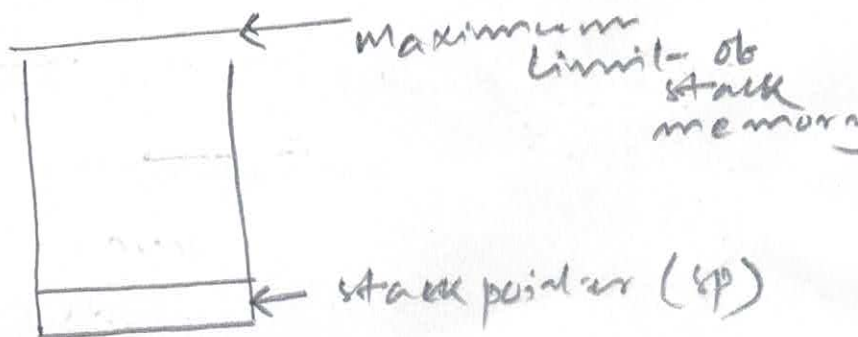 maximum
limit of
stack
memory
stack pointer (sp)